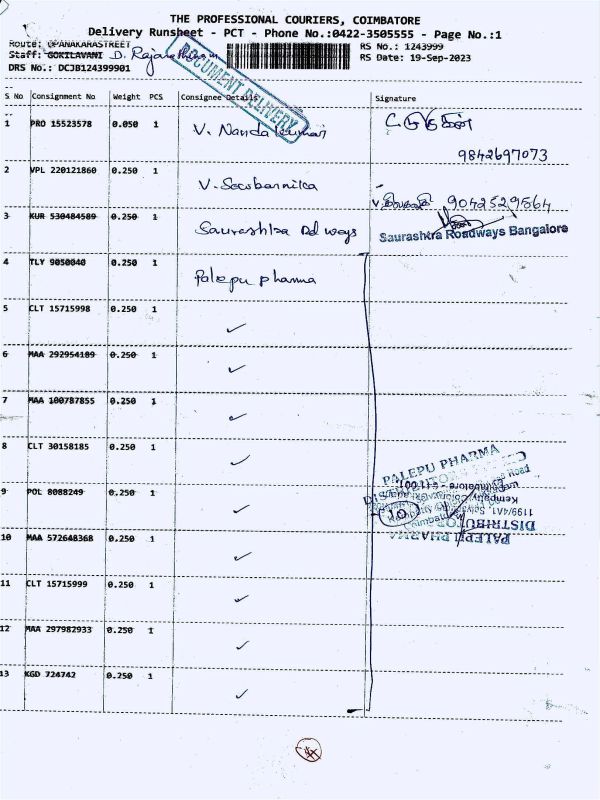 THE PROFESSIONAL COURIERS, COIMBATORE
Delivery Runsheet - PCT - Phone No.:0422-3505555 - Page No.:1
Route: OPANAKARASTREET
RS No.: 1243999
Staff: GOKILAVANI D. Rajarathinam
RS Date: 19-Sep-2023
DRS No.: DCJB124399901
DOCUMENT DELIVERY
S No Consignment No Weight PCS Consignee Details Signature
1 PRO 15523578 0.050 1 V. Nandakumar
9842697073
2 VPL 220121860 0.250 1 V. Seobarnika
9042529564
3 KUR 530484589 0.250 1 Saurashtra Rd ways
Saurashtra Roadways Bangalore
4 TLY 9050040 0.250 1 Palepu Pharma
5 CLT 15715998 0.250 1 ✓
6 MAA 292954189 0.250 1 ✓
7 MAA 100787855 0.250 1 ✓
8 CLT 30158185 0.250 1 ✓
PALEPU PHARMA
9 POL 8088249 0.250 1 ✓
10
DISTRIBUTOR
PALEPU PHARMA
10 MAA 572648368 0.250 1 ✓
11 CLT 15715999 0.250 1 ✓
12 MAA 297982933 0.250 1 ✓
13 KGD 724742 0.250 1 ✓